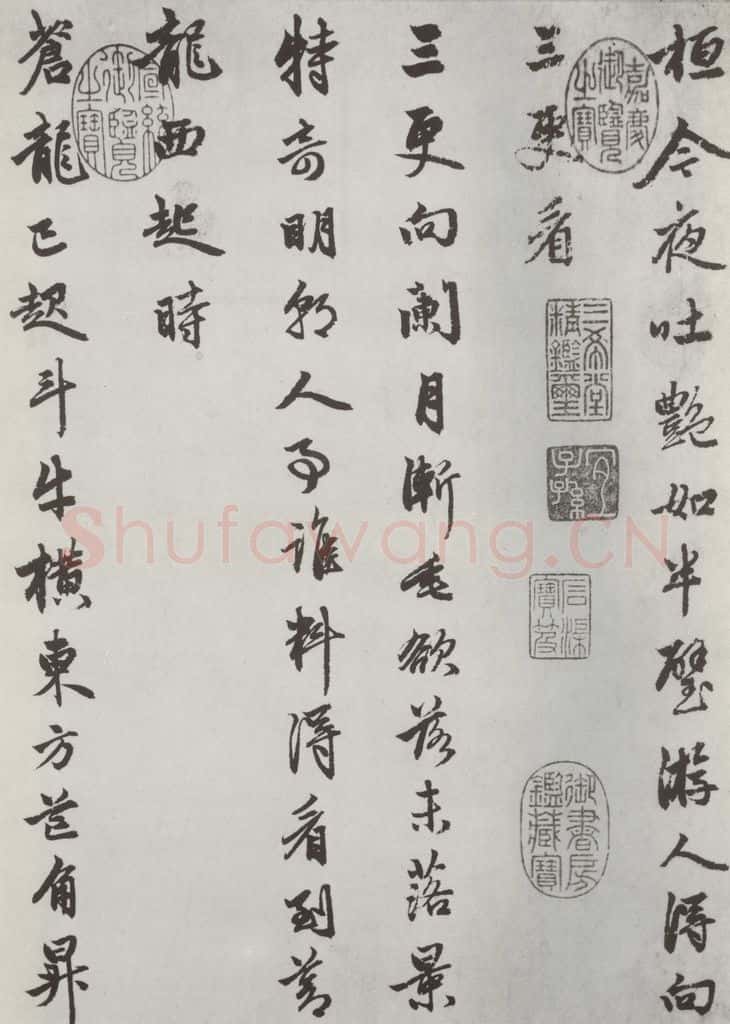 桓今夜吐艷如半璧游人得向
三更看
三更向闌月漸垂欲落未落景
特奇明朝人事誰料得看到蒼
龍西起時
蒼龍已起斗牛橫東方芒角昇
嘉慶御覽之寶
三希堂精鑑璽
宜子孫
石渠寶笈
御書房鑑藏寶
宣統御覽之寶
Shufawang.CN